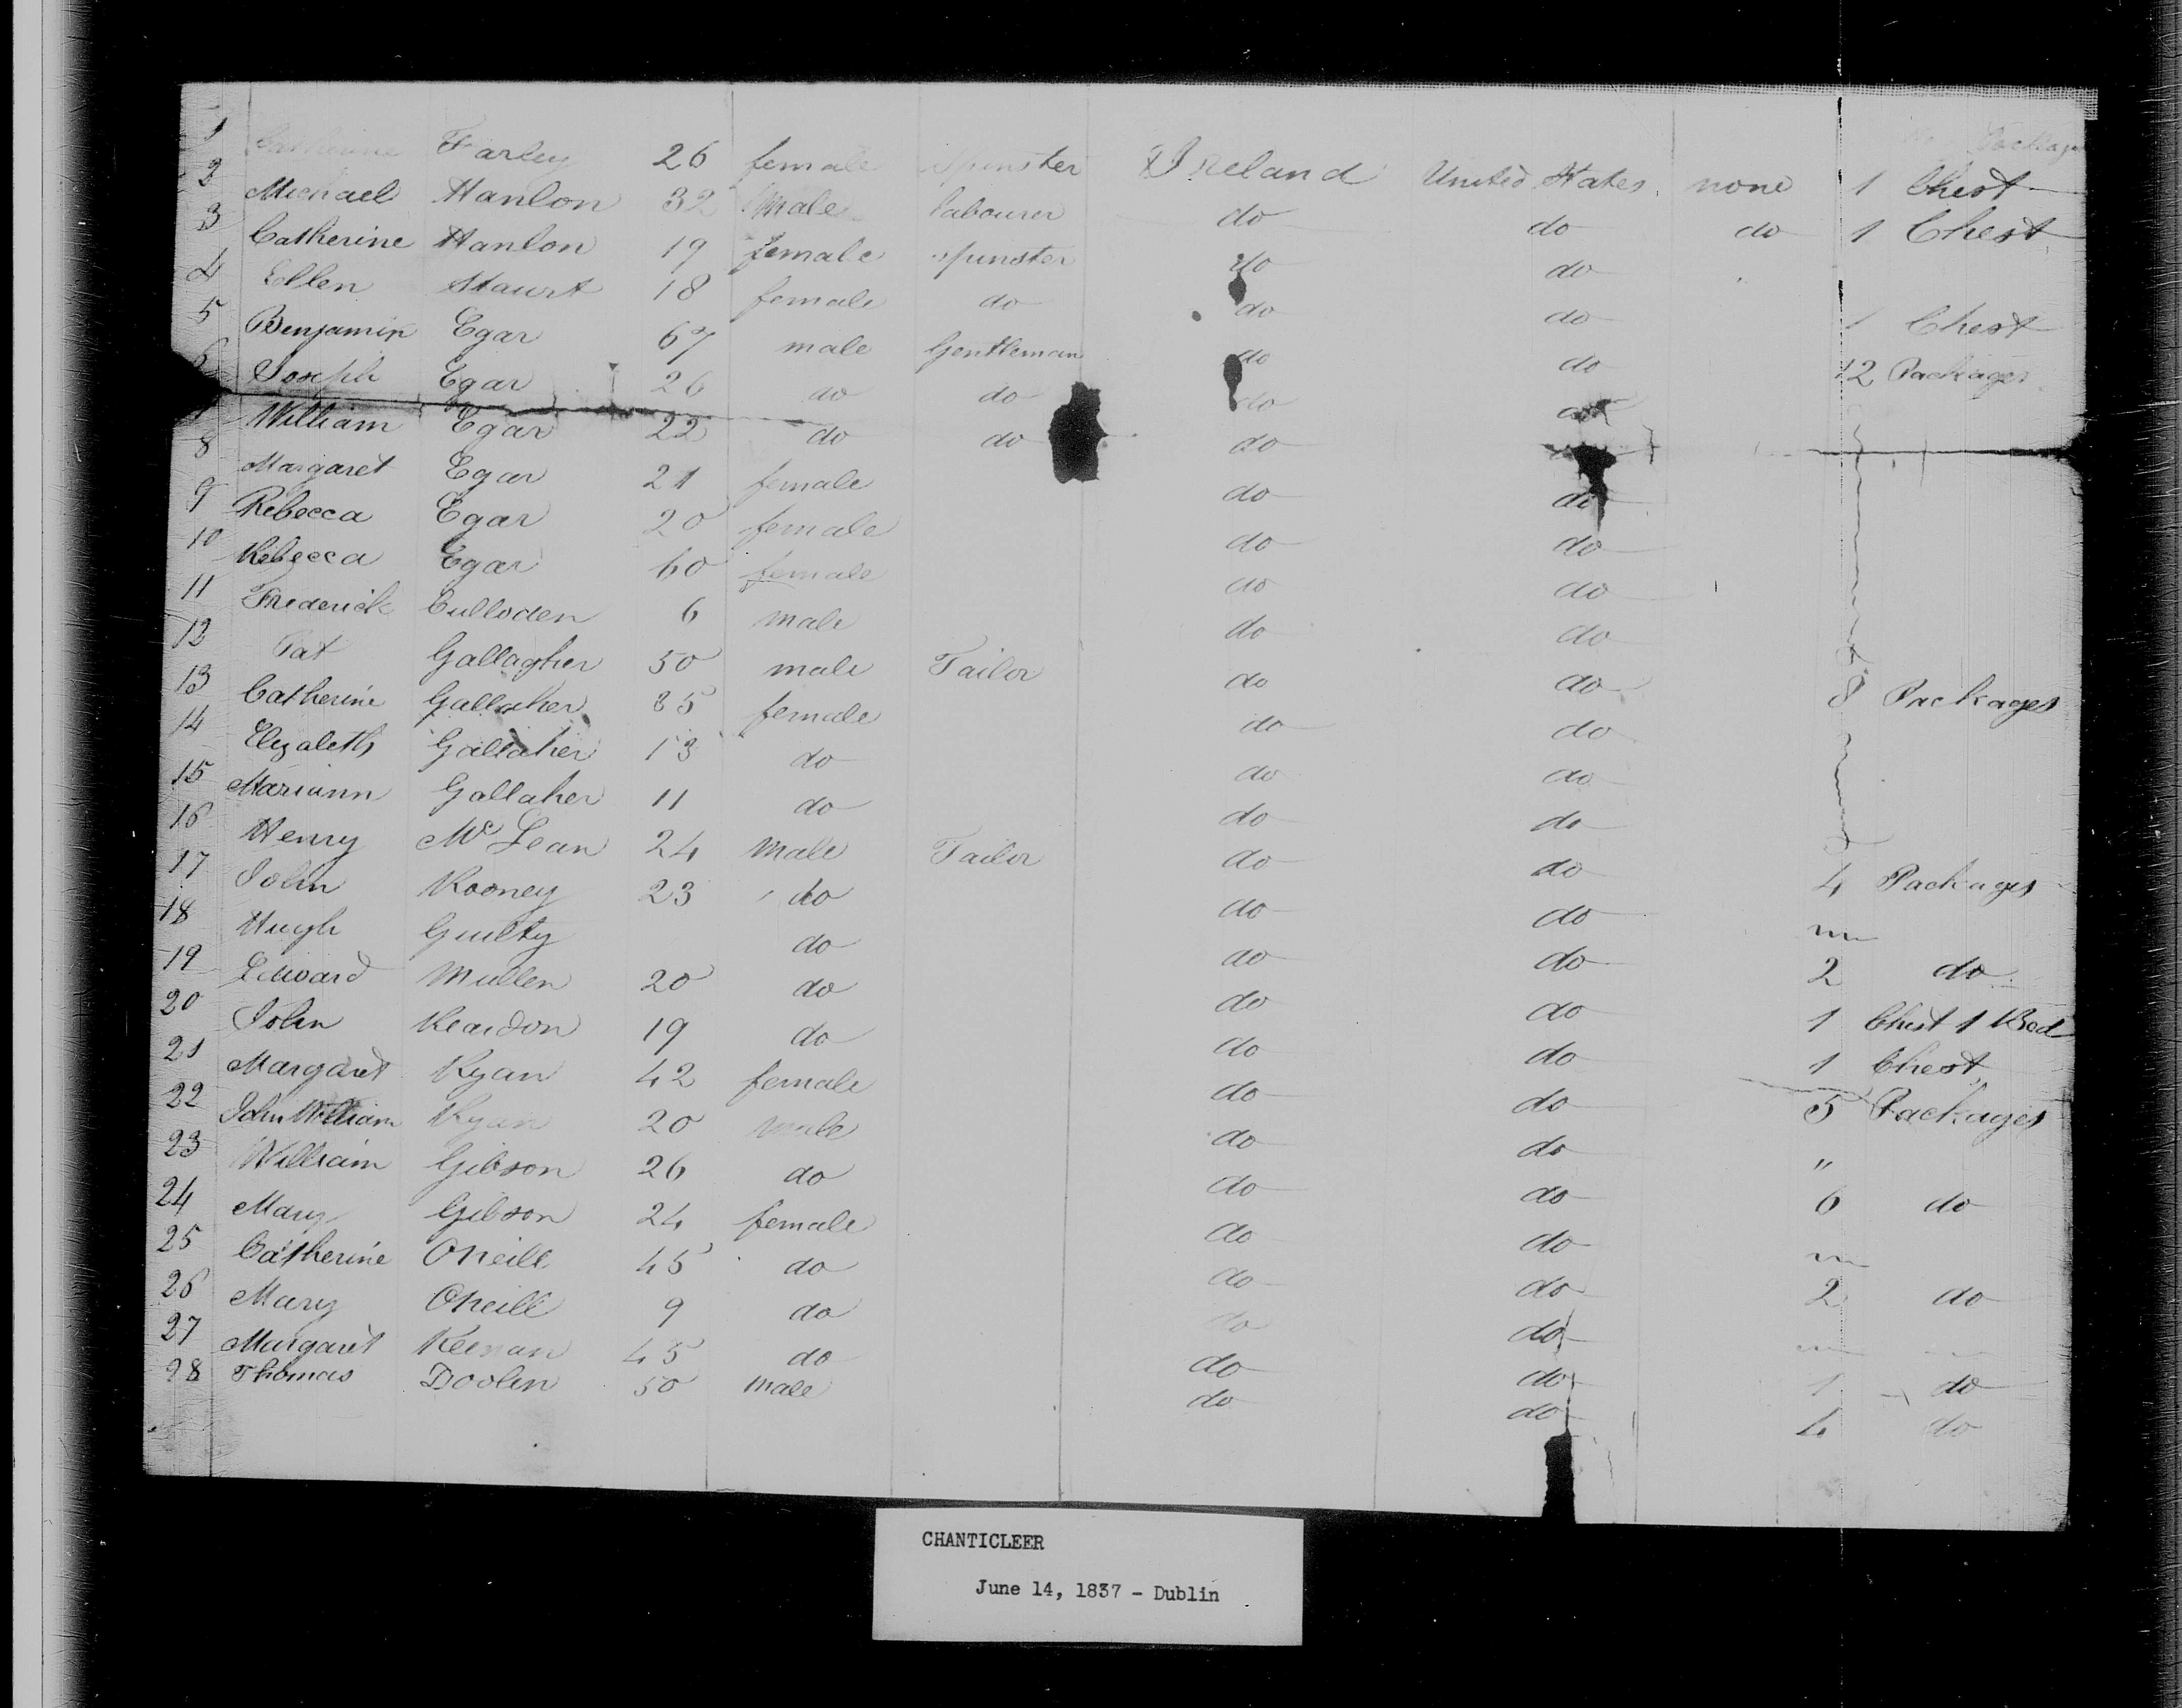 Packages
1 Catherine Farley 26 female Spinster Ireland United States none 1 Chest
2 Michael Hanlon 32 Male labourer do do do 1 Chest
3 Catherine Hanlon 19 female spinster do do
4 Ellen 18 female do do do 1 Chest
5 Benjamin Egar 67 male Gentleman do do 12 Packages
6 Joseph Egar 26 do do do do
William Egar 22 do do do
8 Margaret Egar 21 female do do
9 Rebecca Egar 20 female do do
10 Rebecca Egar 60 female do do
11 Frederick Culloden 6 male do do
12 Pat Gallagher 50 male Tailor do do 8 Packages
13 Catherine Gallaher 35 female do do
14 Elizabeth Gallaher 13 do do do
15 Mariann Gallaher 11 do do do
16 Henry McLean 24 Male Tailor do do 4 Packages
17 John Rooney 23 do do do
18 Hugh Guilty do do do 2 do
19 Edward Mullen 20 do do do 1 Chest 1 Bed
20 John Reardon 19 do do do 1 Chest
21 Margaret Ryan 42 female do do 5 Packages
22 John William Ryan 20 male do do "
23 William Gibson 26 do do do 6 do
24 Mary Gibson 24 female do do
25 Catherine ONeill 45 do do do 2 do
26 Mary ONeill 9 do do do
27 Margaret Keenan 45 do do do 1 do
28 Thomas Doolen 50 Male do do 4 do
CHANTICLEER
June 14, 1837 - Dublin